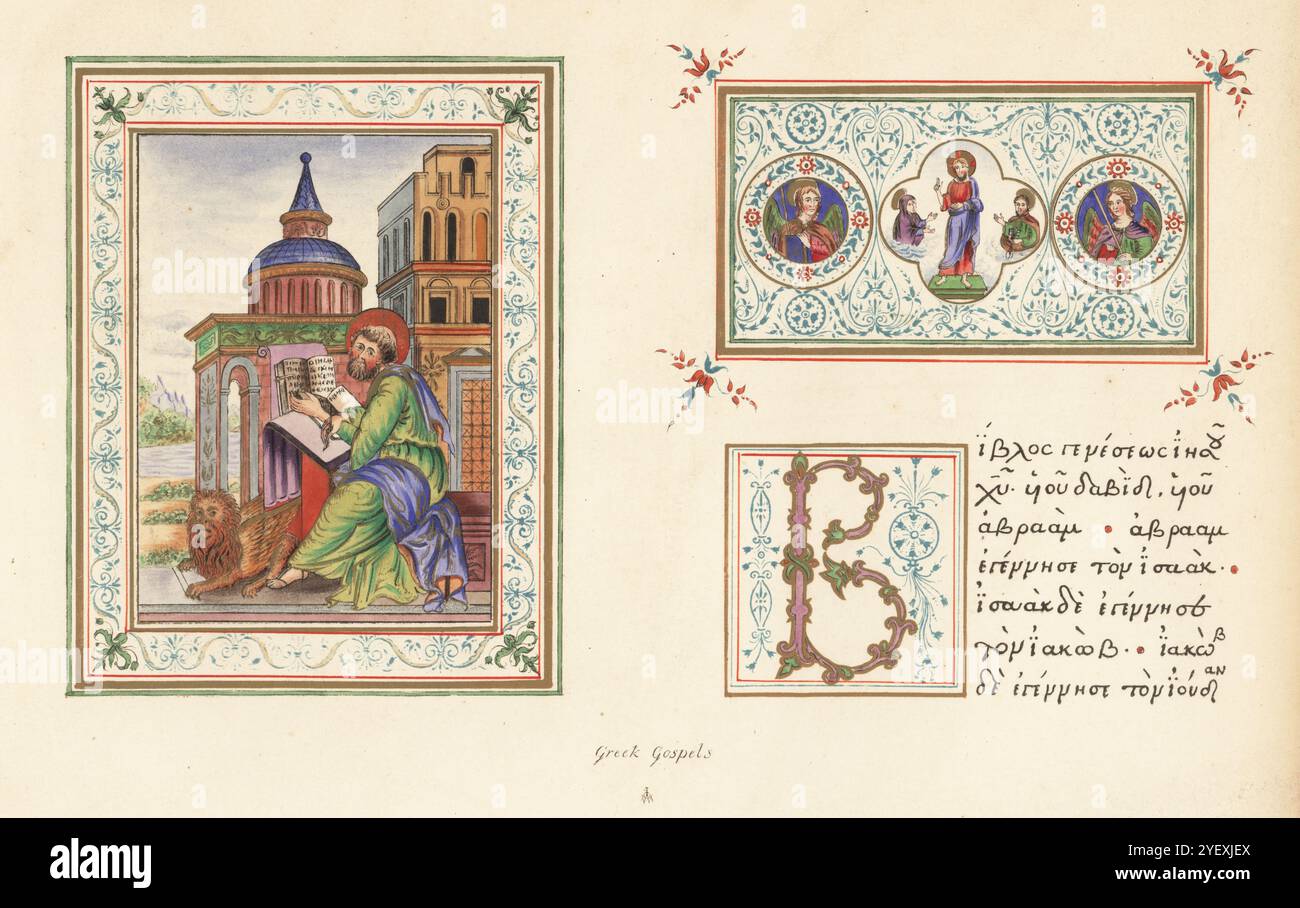 Βίβλος γενέσεως ἰησοῦ
χ̅υ̅· ὑοῦ δαβὶδ, ὑοῦ
ἀβραὰμ • ἀβραὰμ
ἐγέννησε τὸν ἰσαὰκ · •
ἰσαὰκ δὲ ἐγέννησε
τὸν ϊακὼβ · • ϊακὼβ
δὲ ἐγέννησε τὸν ϊούδαν
Greek Gospels
alamy
Image ID: YEXJEX
www.alamy.com